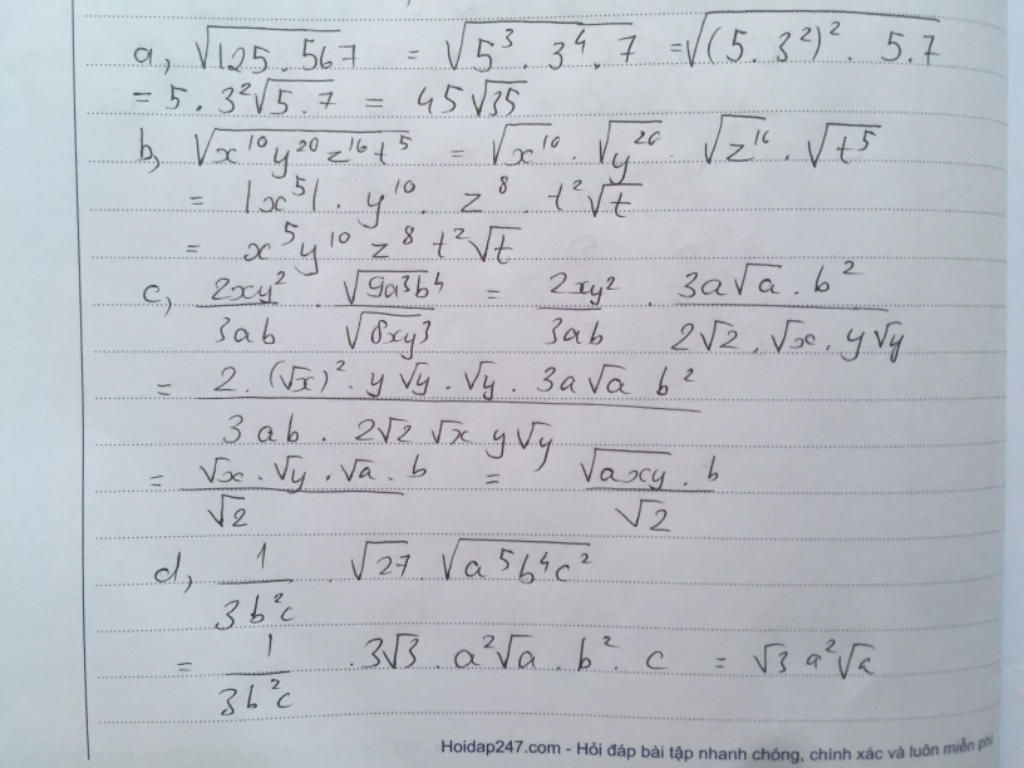 a, √(125.567) = √(5³.3⁴.7) = √((5.3²)².5.7)
= 5.3²√(5.7) = 45√35
b, √(x¹⁰y²⁰z¹⁶t⁵) = √(x¹⁰).√(y²⁰) √(z¹⁶).√(t⁵)
= |x⁵|.y¹⁰.z⁸.t²√t
= x⁵y¹⁰z⁸t²√t
c, 2xy²/3ab . √(9a³b⁴)/√(8xy³) = 2xy²/3ab . 3a√a.b²/2√2.√x.y√y
= 2.(√x)².y√y.√y.3a√a b²/3ab.2√2 √x y√y
= √x.√y.√a.b/√2 = √(axy).b/√2
d, 1/3b²c . √27.√(a⁵b⁴c²)
= 1/3b²c .3√3.a²√a.b².c = √3 a²√a
Hoidap247.com - Hỏi đáp bài tập nhanh chóng, chính xác và luôn miễn phí